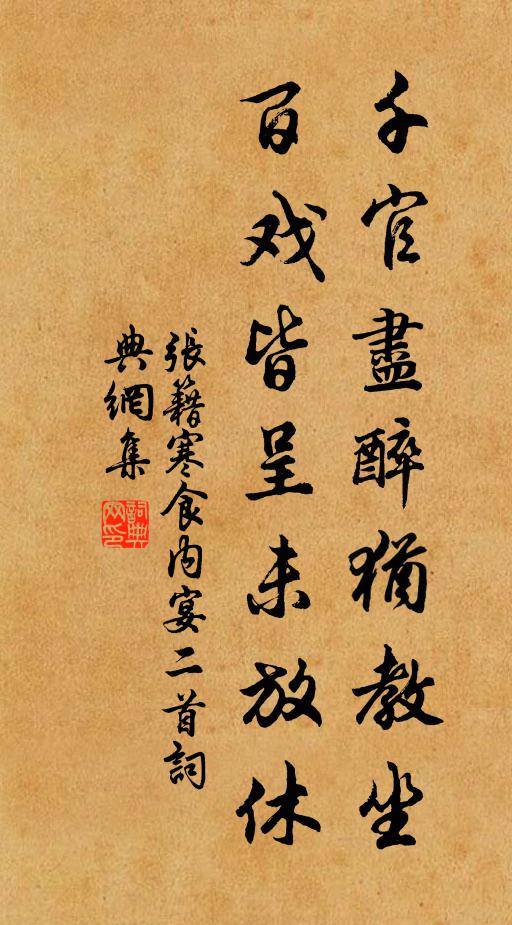 千官盡醉猶教坐
百戏皆呈未放休
張籍寒食内宴二首詞
典網集
詞典
网印